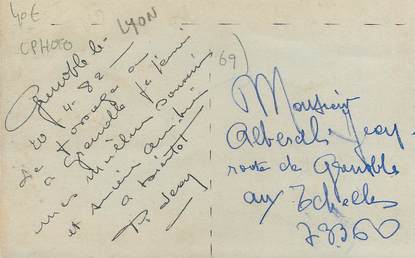 40€
CPHOTO
LYON
69)
Grenoble le
20-4-82
De passage à
à Grenoble je joins
mes meilleurs souvenirs
et sincère amitié
à bientôt
P. Jean
Monsieur
Jean
route de Grenoble
aux Echelles
73360